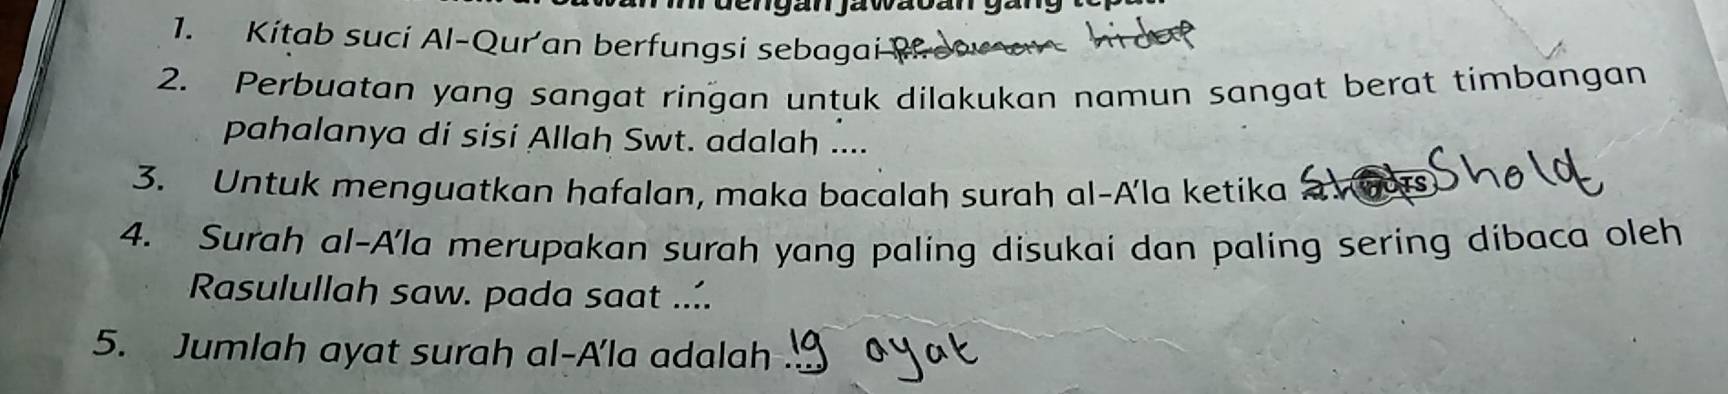 dengan jawaban yang
1. Kitab suci Al-Qur'an berfungsi sebagai pedoman hidup
2. Perbuatan yang sangat ringan untuk dilakukan namun sangat berat timbangan
pahalanya di sisi Allah Swt. adalah ....
3. Untuk menguatkan hafalan, maka bacalah surah al-A'la ketika Sholat
4. Surah al-A'la merupakan surah yang paling disukai dan paling sering dibaca oleh
Rasulullah saw. pada saat ....
5. Jumlah ayat surah al-A'la adalah .... 19 ayat